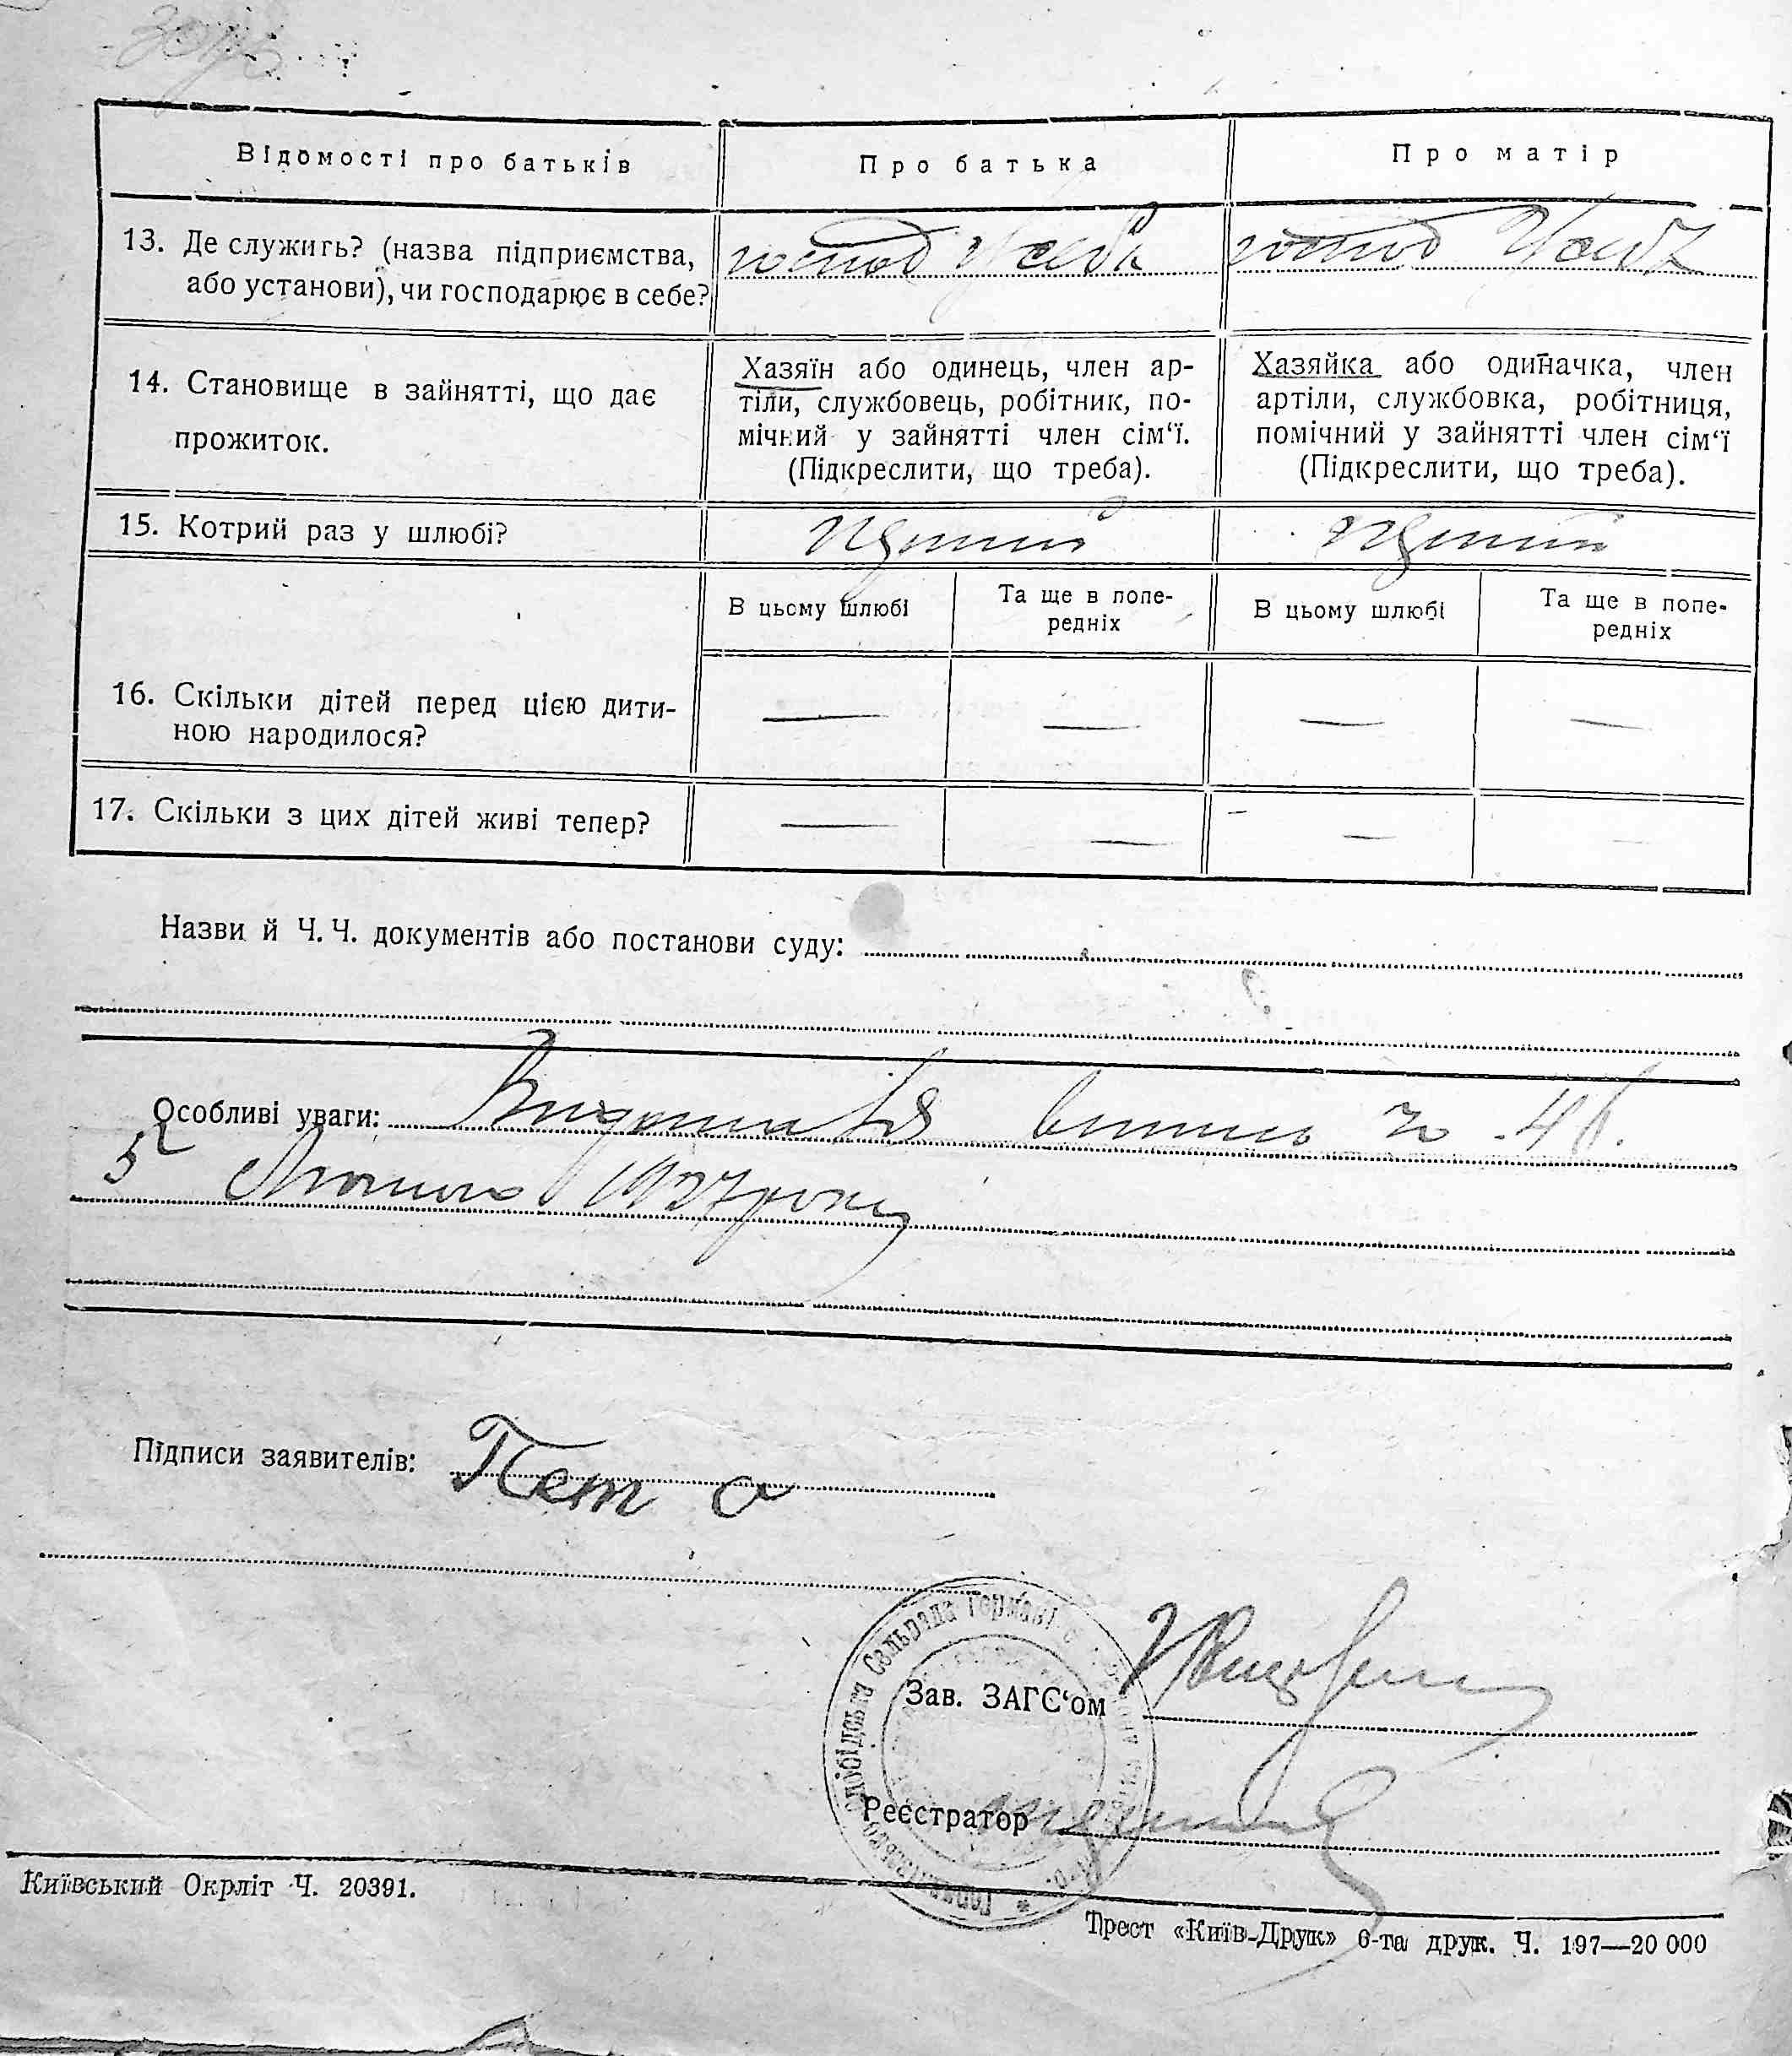 Відомості про батьків
Про батька
Про матір
13. Де служить? (назва підприємства,
або установи), чи господарює в себе?
господ у себе
господ у себе
14. Становище в зайнятті, що дає
прожиток.
Хазяїн або одинець, член ар-
тіли, службовець, робітник, по-
мічний у зайнятті член сім‘ї.
(Підкреслити, що треба).
Хазяйка або одиначка, член
артіли, службовка, робітниця,
помічний у зайнятті член сім‘ї
(Підкреслити, що треба).
15. Котрий раз у шлюбі?
перший
перший
В цьому шлюбі
Та ще в попе-
редніх
В цьому шлюбі
Та ще в попе-
редніх
16. Скільки дітей перед цією дити-
ною народилося?
— — — —
17. Скільки з цих дітей живі тепер?
— — — —
Назви й Ч. Ч. документів або постанови суду:
Особливі уваги: випись
5 Лютого 1927 року
Підписи заявителів:
Зав. ЗАГС‘ом
Реєстратор
Сільрада
Київський Окрліт Ч. 20391.
Трест «Київ-Друк» 6-та друк. Ч. 197—20 000